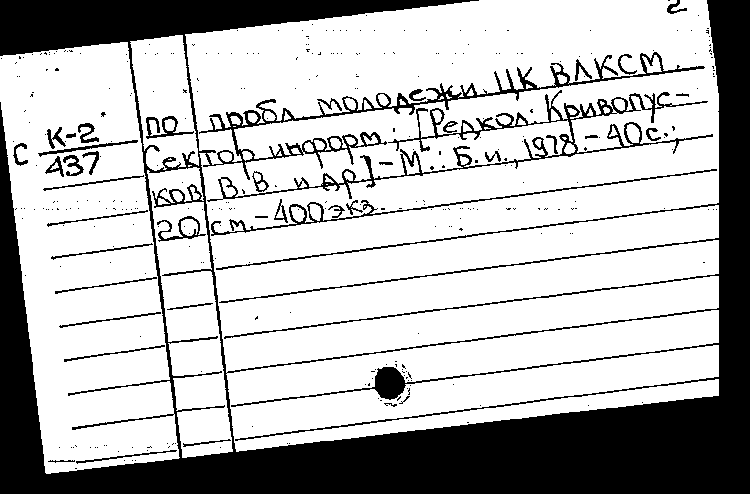 2
по пробл. молодежи. ЦК ВЛКСМ.
С К-2
437
Сектор информ.; [Редкол: Кривопус-
ков В.В. и др.] - М.: Б.и., 1978. - 40с.;
20 см. - 400 экз.